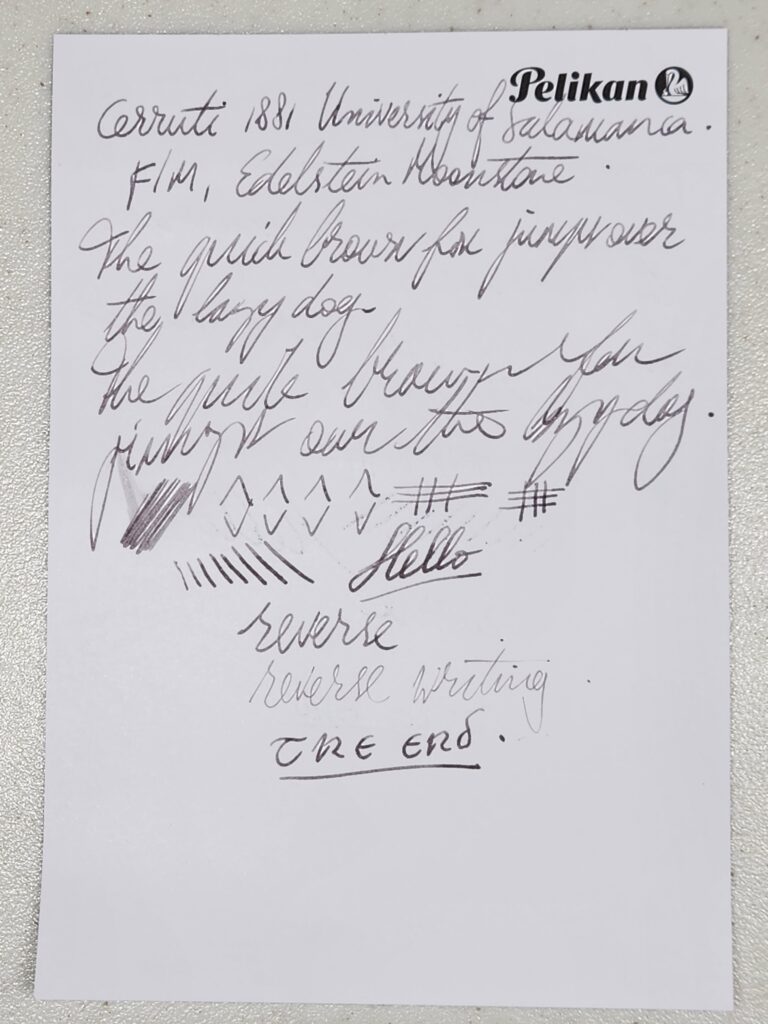 Pelikan
Cerruti 1881 University of Salamanca.
F/M, Edelstein Moonstone.
The quick brown fox jumps over
the lazy dog.
The quick brown fox
jumps over the lazy dog.
Hello
reverse
reverse writing.
THE END.